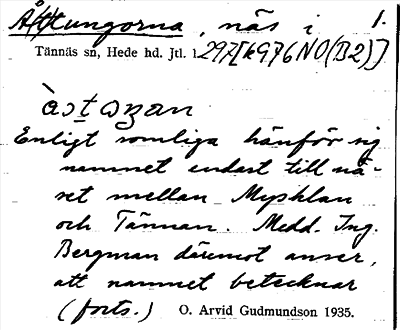 Åttungorna, näs i 1.
Tännäs sn, Hede hd. Jtl. l. 297[k976NO(B2)]
Enligt somliga hänför sig
namnet endast till nä-
set mellan Mysklan
och Tännan. Medd. Ing.
Bergman däremot anser,
att namnet betecknar
(forts.) O. Arvid Gudmundson 1935.